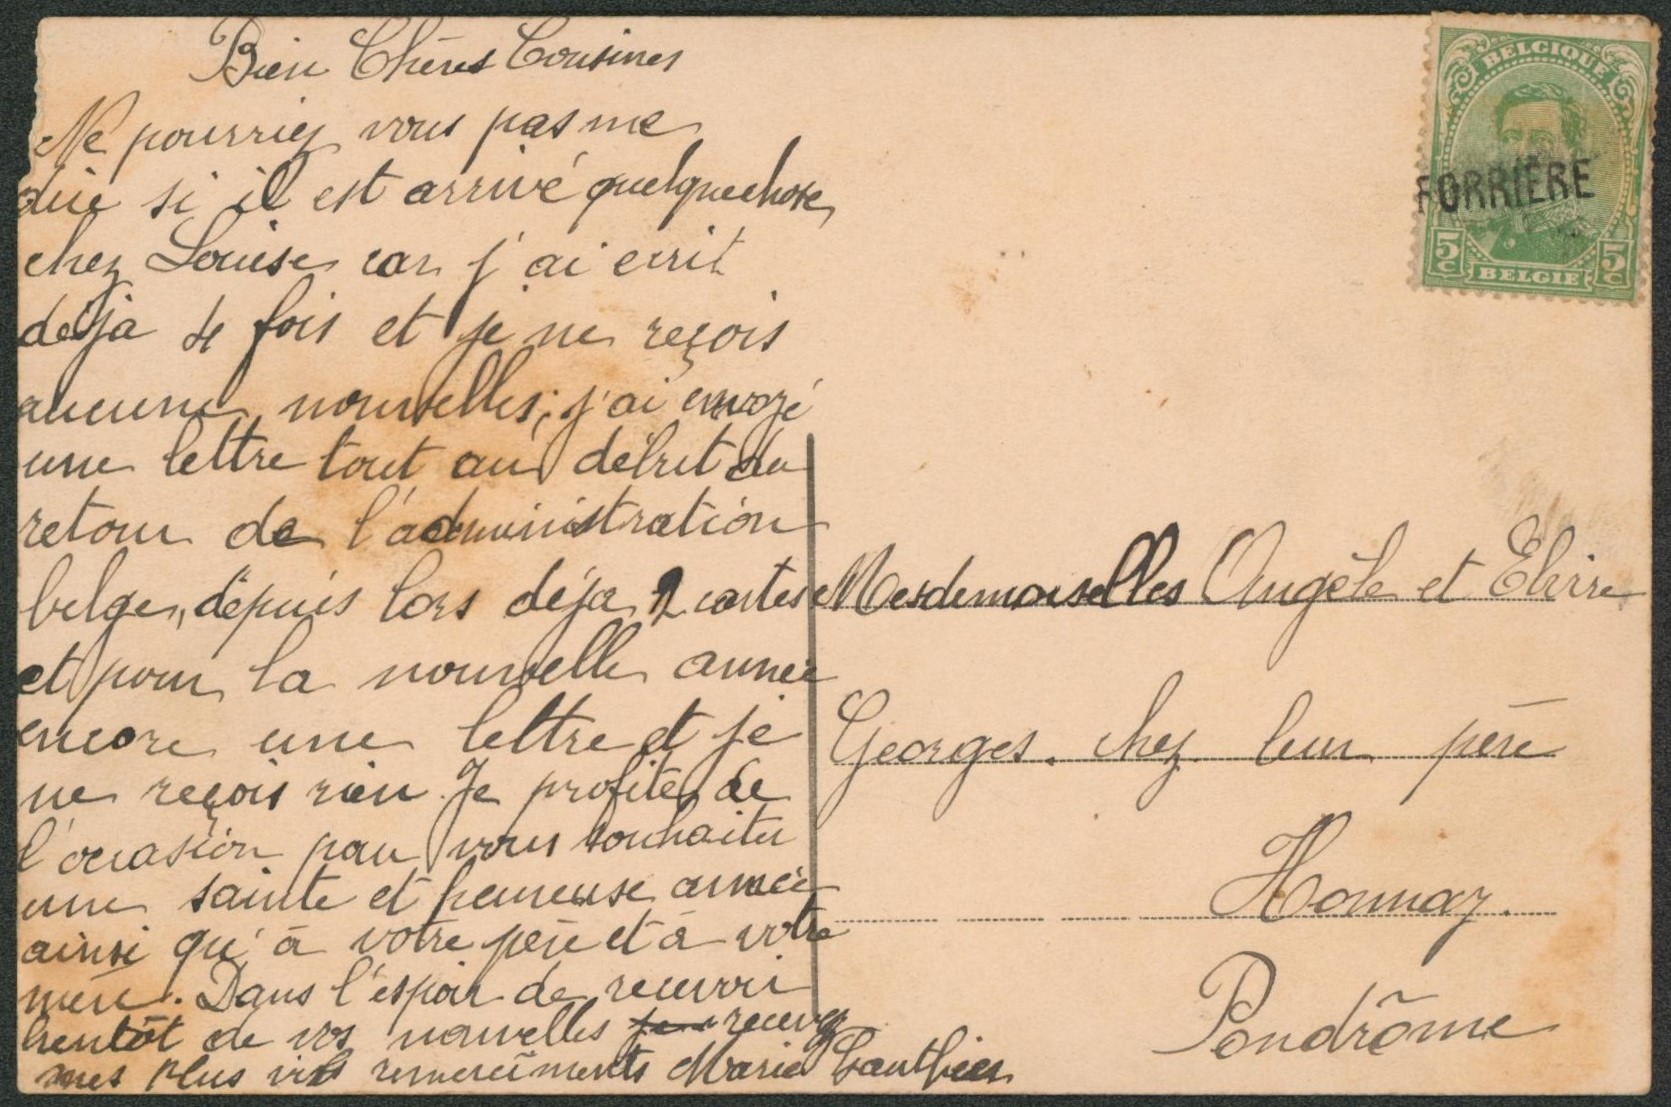 Bien Chères Cousines
Ne pourriez vous pas me
dire si il est arrivé quelquechose
chez Louise car j'ai ecrit
deja 4 fois et je ne reçois
aucune nouvelles; j'ai envoyé
une lettre tout au début du
retour de l'administration
belge, depuis lors déja 2 cartes
et pour la nouvelle année
encore une lettre et je
ne reçois rien. Je profite de
l'occasion pour vous souhaiter
une sainte et heureuse année
ainsi qu'à votre père et à votre
mère. Dans l'espoir de recevoir
bientôt de vos nouvelles recevez
mes plus vifs remerciments Marie Gauthier
BELGIQUE
FORRIÈRE
5c 5c
BELGIE
Mesdemoiselles Angèle et Elvire
Georges. chez leur père
Honnay.
Pondrôme